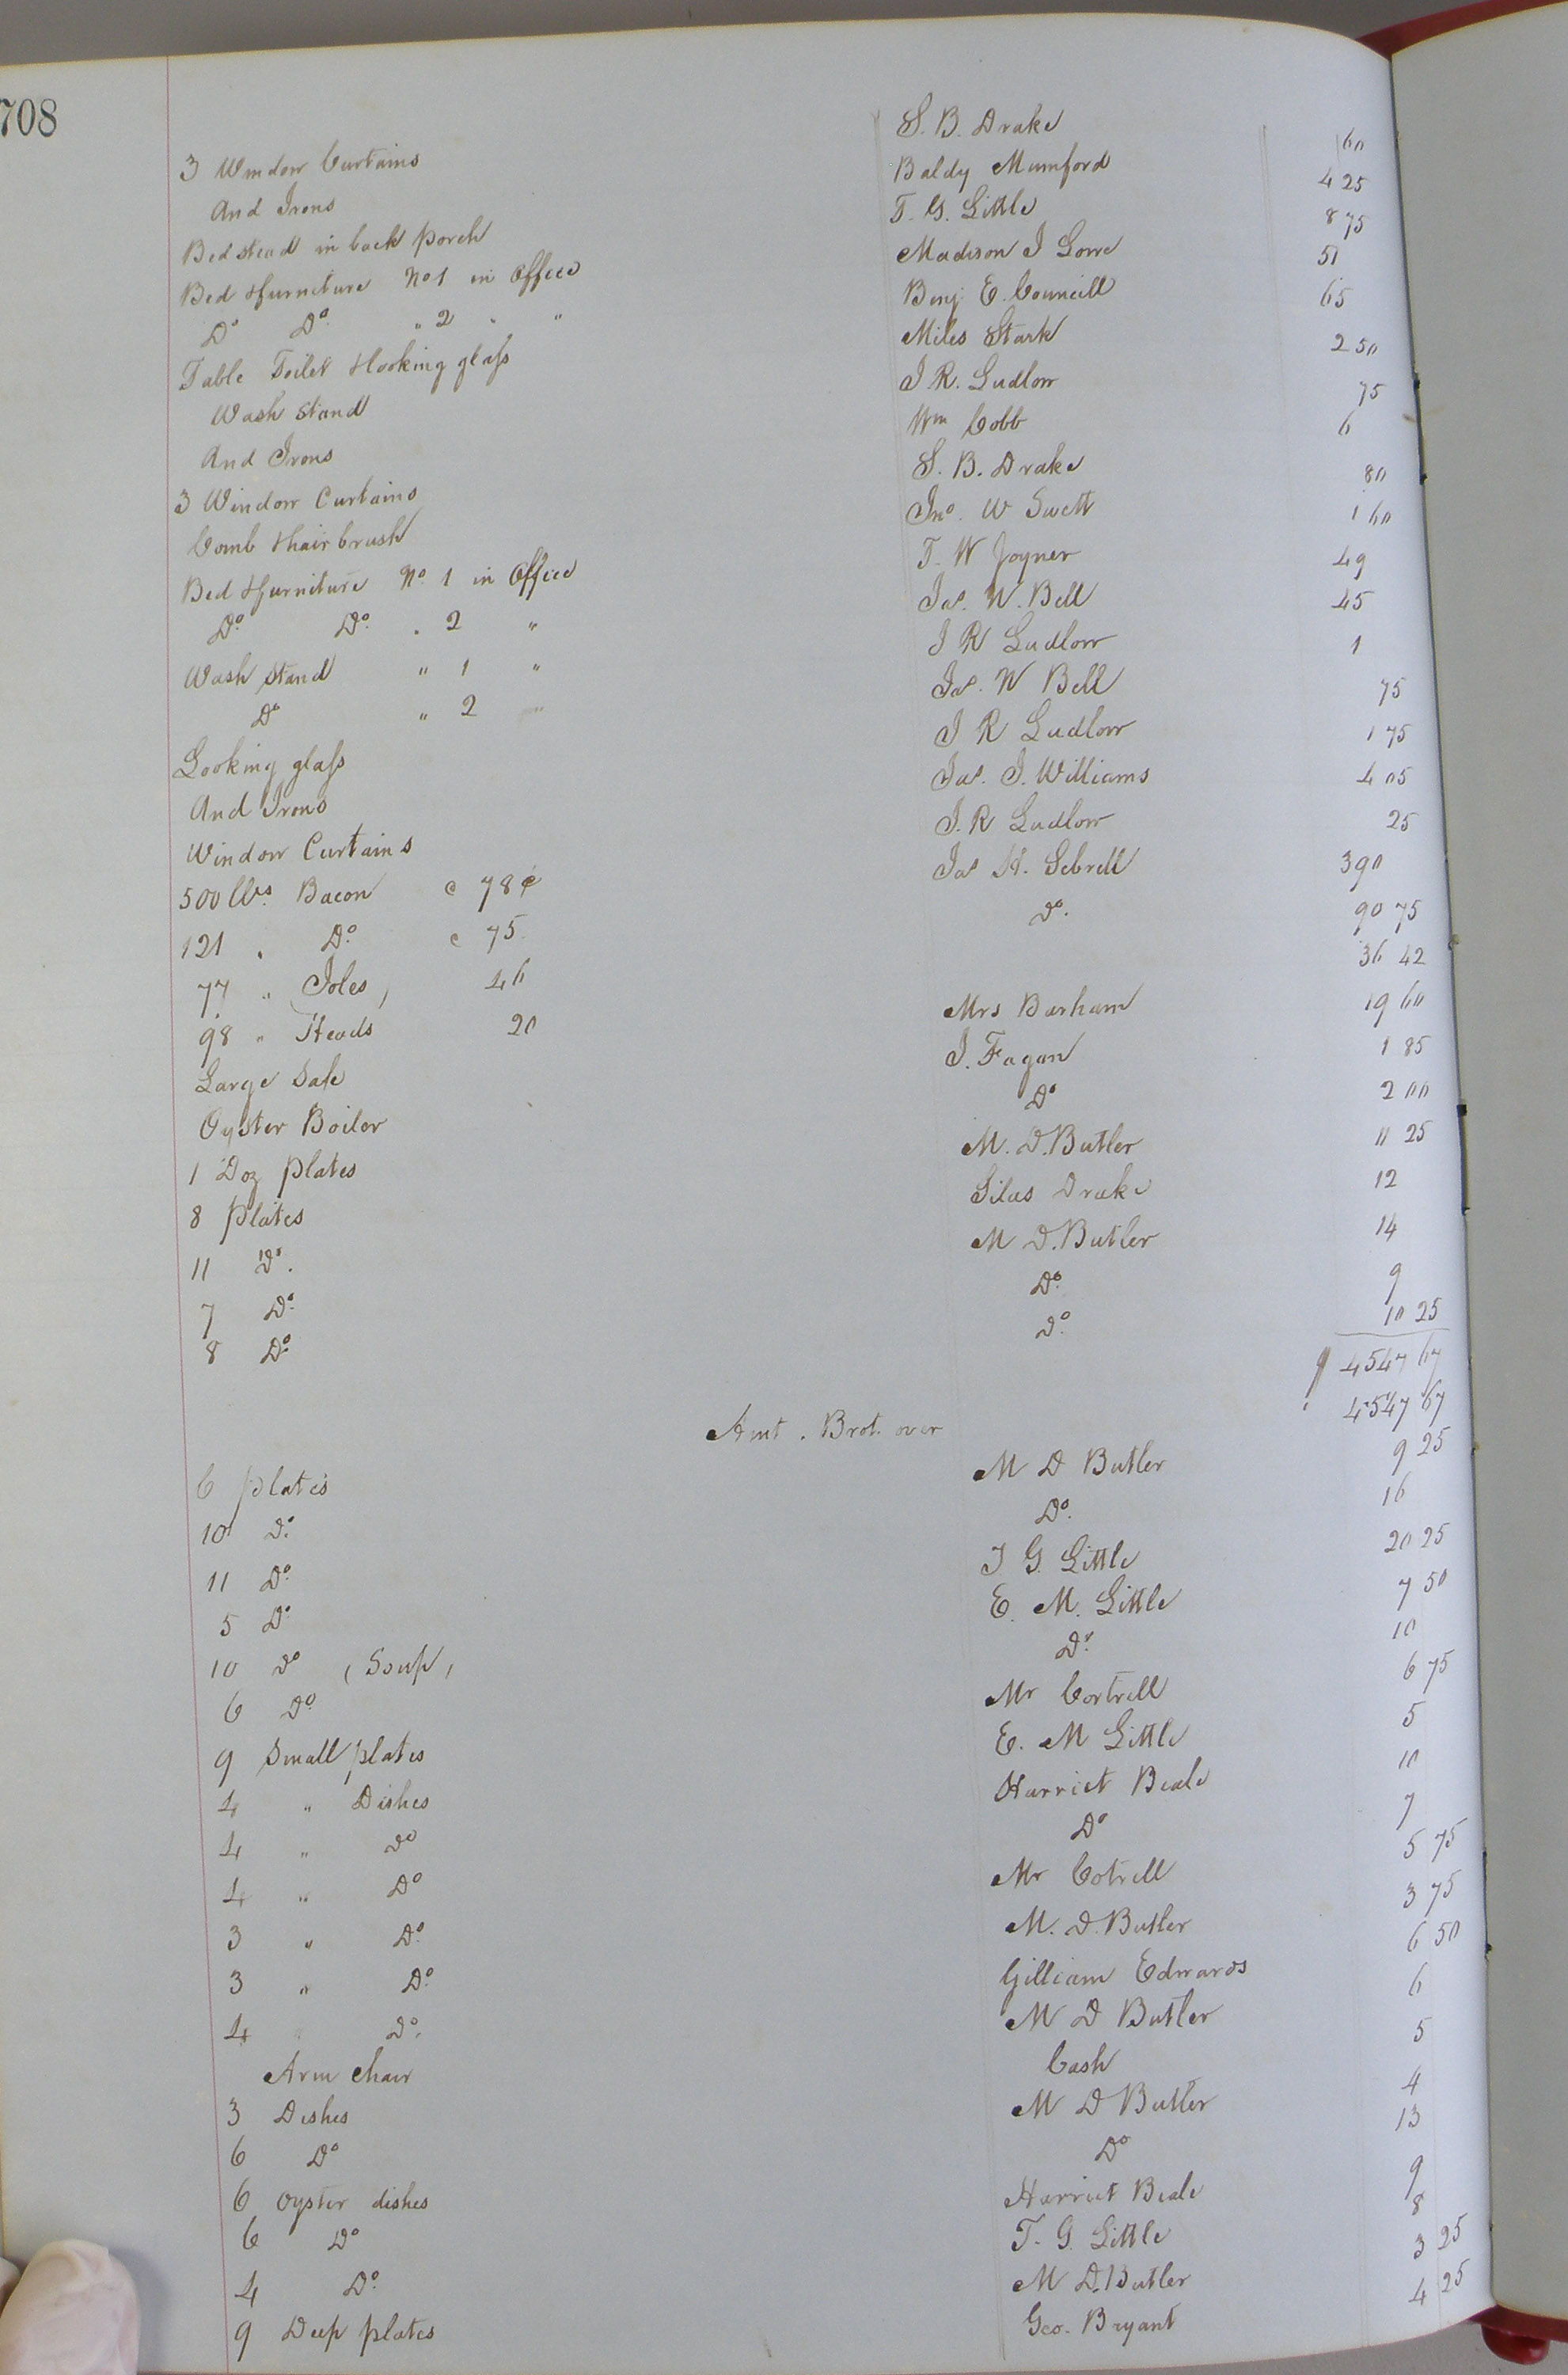 708
3 Window Curtains S. B. Drake 60
And Irons Baldy Mumford 4 25
Bedstead in back porch T. G. Little 8 75
Bed & furniture No 1 in Office Madison J Lowe 51
Do Do. " 2 " " Benj E. Councill 65
Table Toilet & looking glass Miles Stark 2 50
Wash Stand J R. Ludlow 75
And Irons Wm Cobb 6
3 Window Curtains S. B. Drake 80
Comb & hair brush Jno. W Swett 1 60
Bed & furniture No. 1 in Office T. W Joyner 49
Do. Do. " 2 " Jas. W. Bell 45
Wash Stand " 1 " J R Ludlow 1
Do " 2 " Jas. W Bell 75
Looking glass J R Ludlow 1 75
And Irons Jas. J. Williams 4 05
Window Curtains J. R Ludlow 25
500 lbs. Bacon c 78¢ Jas H. Sebrell 390
121 " Do. c 75 Do. 90 75
77 " Joles, 46 36 42
98 " Heads 20 Mrs Barham 19 60
Large Safe J. Fagan 1 85
Oyster Boiler Do 2 00
1 Doz plates M. D. Butler 11 25
8 plates Silas Drake 12
11 Do. M D. Butler 14
7 Do. Do. 9
8 Do. Do. 10 25
4547 67
Amt. Brot. over 4547 67
6 plates M D Butler 9 25
10 Do. Do. 16
11 Do. T G. Little 20 25
5 Do. E. M. Little 7 50
10 Do (Soup) Do. 10
6 Do. Mr Cortrell 6 75
9 Small plates E. M Little 5
4 " Dishes Harriet Beale 10
4 " Do Do 7
4 " Do Mr Cotrell 5 75
3 " Do. M. D. Butler 3 75
3 " Do. Gilliam Edwards 6 50
4 " Do. M D Butler 6
Arm chair Cash 5
3 Dishes M D Butler 4
6 Do Do 13
6 Oyster dishes Harriet Beale 9
6 Do T. G. Little 8
4 Do. M D. Butler 3 25
9 Deep plates Geo. Bryant 4 25